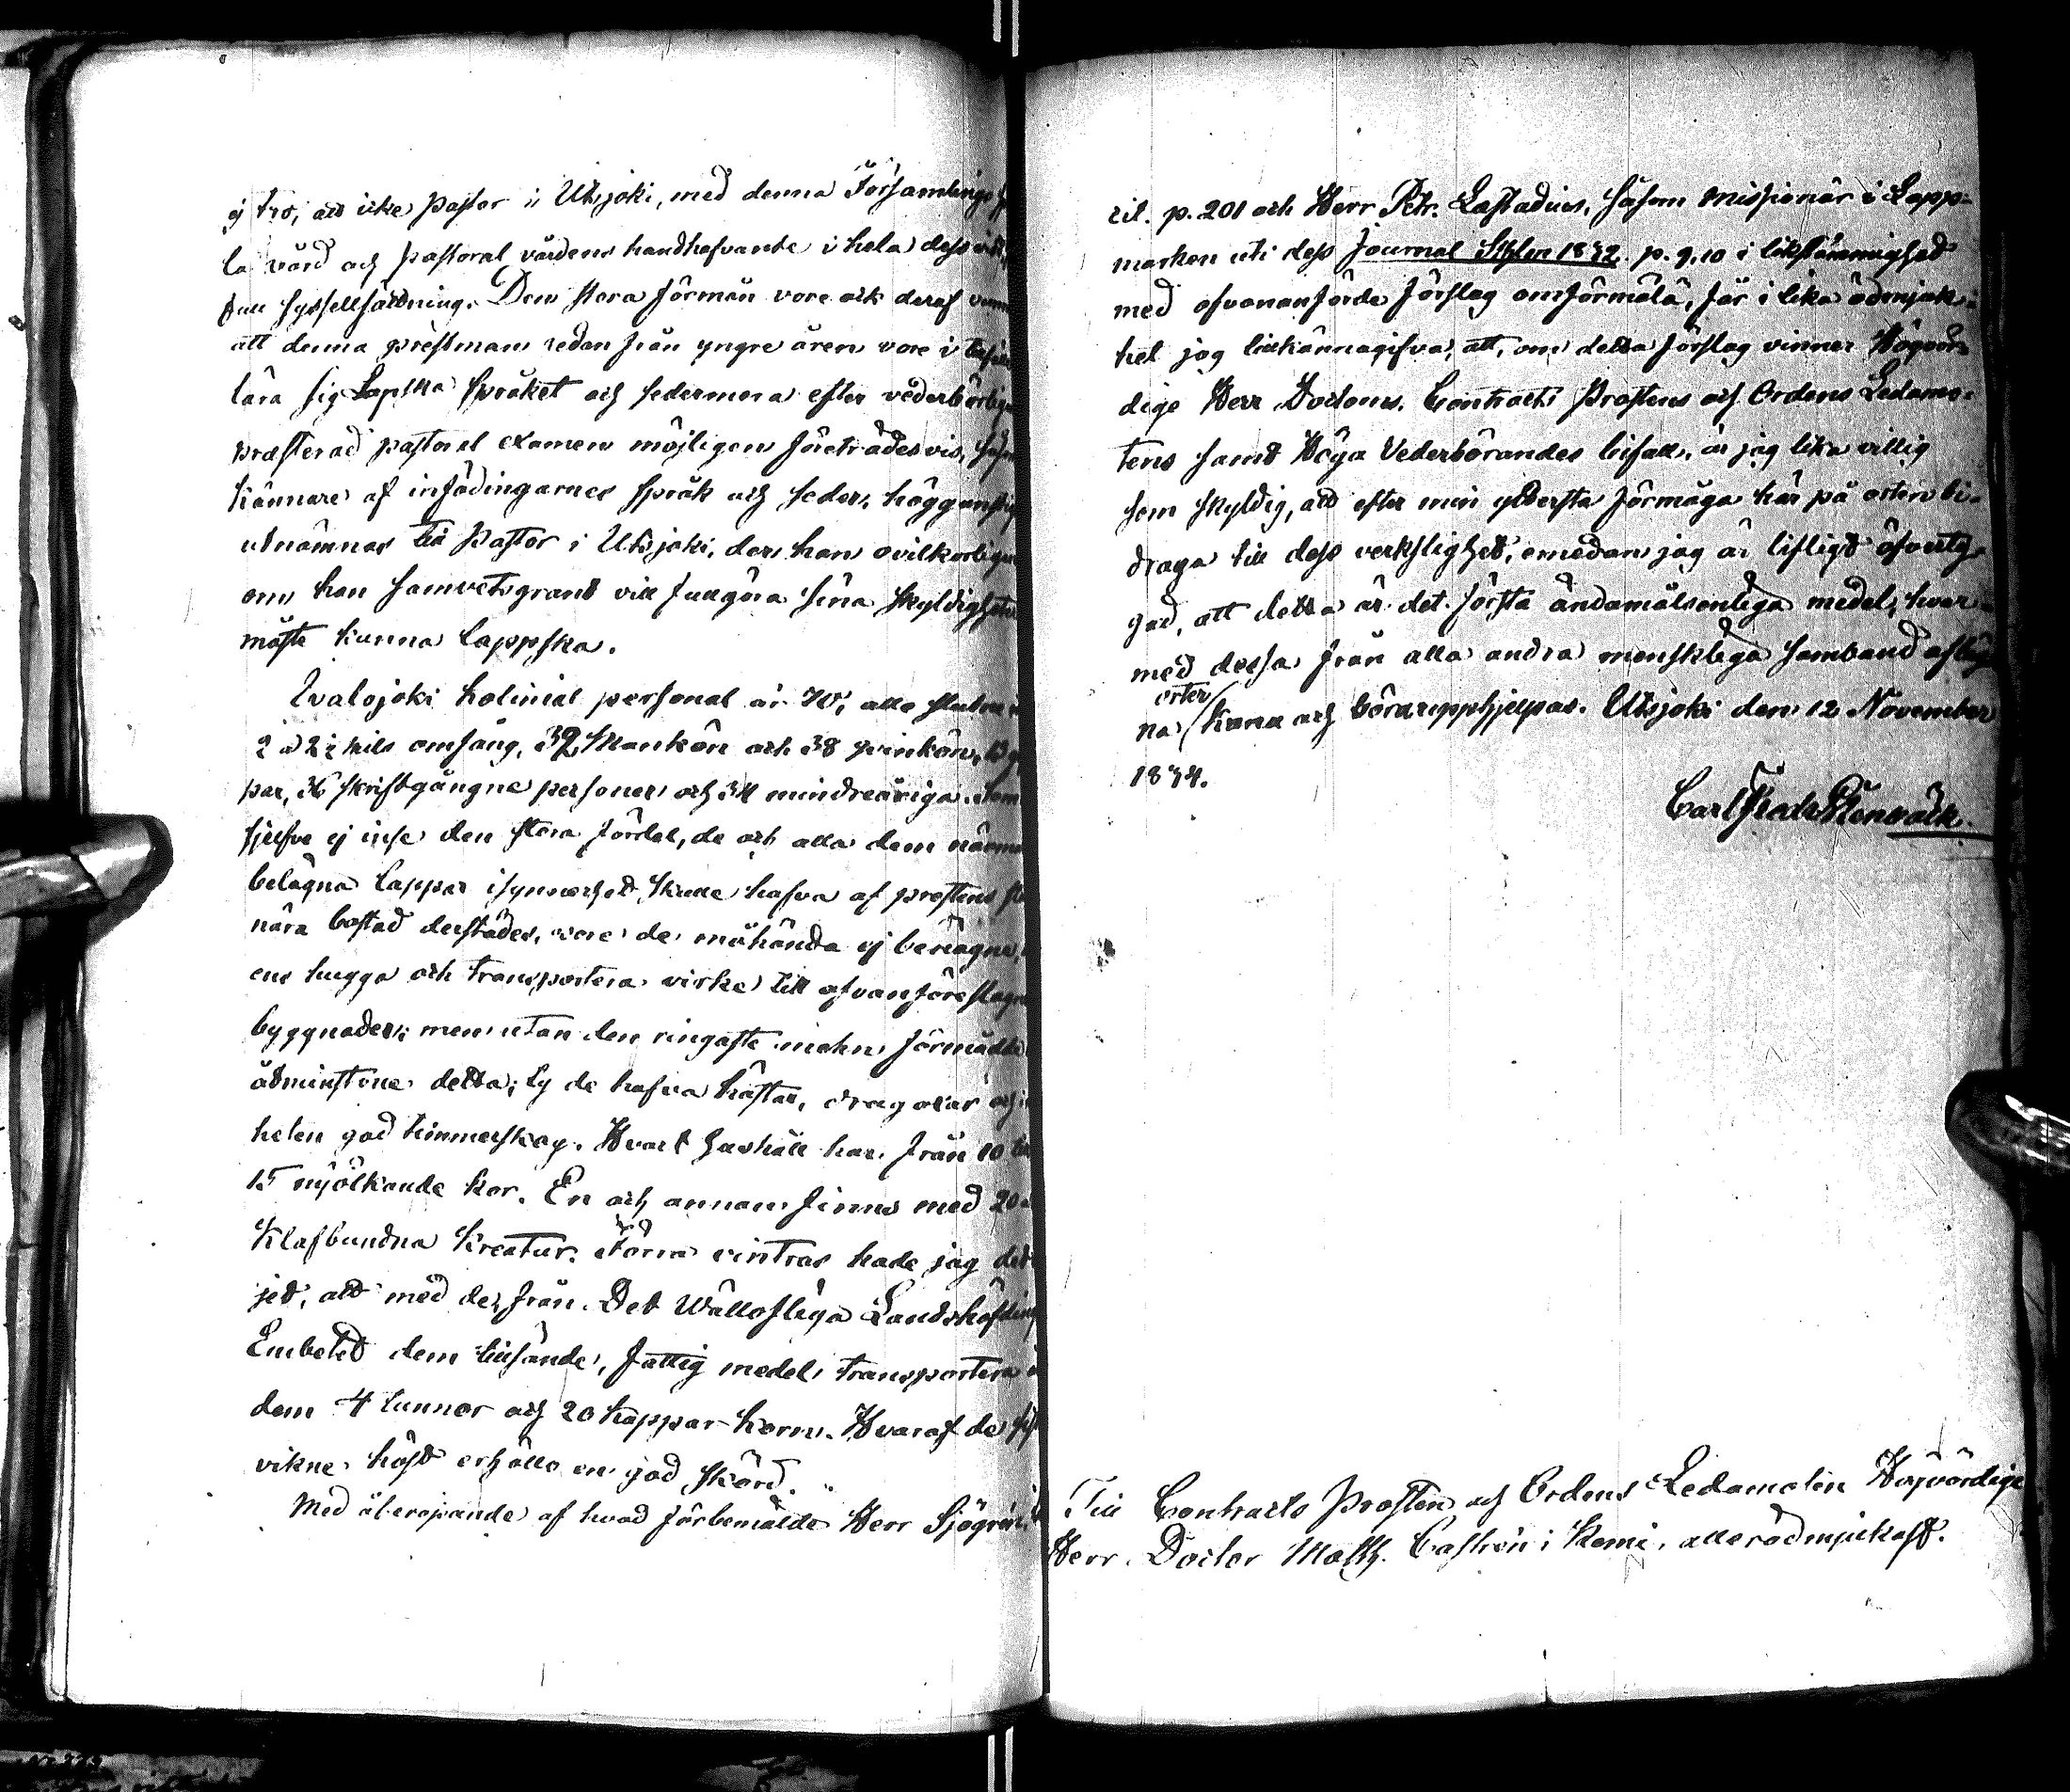 ej tro, att icke Pastor i Utsjoki, med denna Församlings
la vård och pastoral vårdens handhafvande i hela dess
full sysselsättning. Den stora förmån vore ock deraf
att denna prestman redan från yngre åren vore i
lära sig Lapska språket och sedermera efter vederbörligen
præsterad pastoral examen möjligen företrädesvis, såsom
kännare af infödingarnes språk och seder, höggunstigt
utnämnas till Pastor i Utsjoki, der han ovilkorligen
om han samvetsgrant vill fullgöra sina skyldigheter
måste kunna lappska.
Ivalojoki kolonial personal är 70, alla
2 a 2½ mils omfång, 32 Mankön och 38 qvinkön,
par, 36 skriftgångne personer och 34 mindreåriga.
sjelfve ej inse den stora fördel, de och alla dem
belägna lappar isynnerhet skulle hafva af prestens
nära bostad derstädes, vore de måhända ej benägne,
ens hugga och transportera virke till ofvanföreslagne
byggnader; men utan den ringaste mohn förmådde
åtminstone detta; ty de hafva hästar, drag oxar och
heten god timmerskog. Hvart hushåll har från 10 till
15 mjölkande kor. En och annan finnes med 20
klafbundna kreatur. Förra vintras hade jag
jet, att med de från Det Wällofliga Landshöfdinge
Embetet dem tillsände, fattig medel transportera
dem 4 tunnor och 20 kappar korn. Hvaraf de
vikne höst erhöllo en god skörd.
Med åberopande af hvad förbemälde Herr Sjögren
cit. p. 201 och Herr Petr. Læstadius, såsom missionär i Lapp-
marken uti dess Journal Sthlm 1832 p. 9, 10 i likstämmighet
med ofvananförde förslag omförmäla, får i lika ödmjuk-
het jag tillkännagifva, att, om detta förslag vinner Högvör-
dige Herr Doctorns, Contracts Prostens och Ordens Ledamo-
tens samt Höga Vederbörandes bifall, är jag lika villig
som skyldig, att efter min yttersta förmåga här på orten bi-
draga till dess verkslighet, emedan jag är lifligt öfverty-
gad, att detta är det första ändamålsenliga medel, hvar-
med dessa från alla andra menskliga samband
orter
na kunna och böra upphjelpas. Utsjoki den 12 November
1834.
Carl Fredr Stenbäck
Till Contracts Prosten och Ordens Ledamoten Högvördige
Herr Doctor Matth. Castrén i Kemi, allerödmjukast.